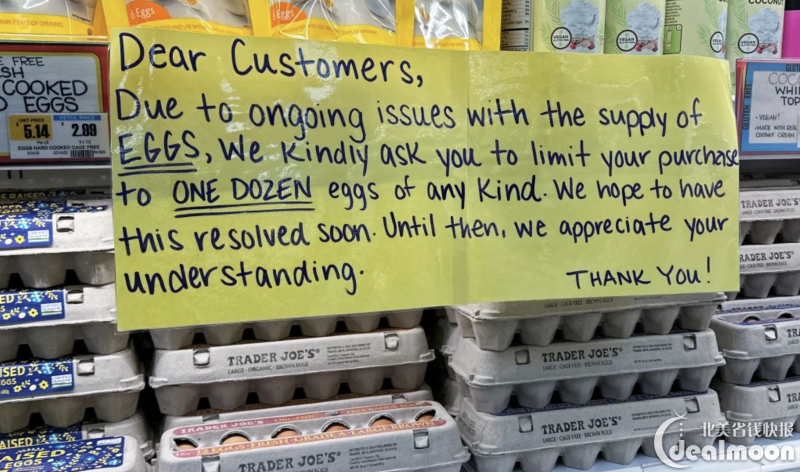 6 Eggs
VEGAN
VEGAN
VEGAN
COCONUT
Dear Customers,
Due to ongoing issues with the supply of
EGGS, We Kindly ask you to limit your purchase
to ONE DOZEN eggs of any Kind. We hope to have
this resolved soon. Until then, we appreciate your
understanding.
THANK YOU!
FREE
COOKED
EGGS
UNIT PRICE
RETAIL PRICE
5.14
2.99
EGGS HARD COOKED CAGE FREE
WHI
TOP
- VEGAN!
- MADE WITH REAL
COCONUT CREAM
TRADER JOE'S®
LARGE • ORGANIC • BROWN EGGS
TRADER JOE'S®
LARGE • CAGE FREE • BROWN EGGS
TRADER JOE'S
TRADER JOE'S
TRADER JOE'S
TRADER JOE'S
TRADER JOE'S
TRADER JOE'S
RAISED
EGGS
RAISED
北美省钱快报
dealmoon